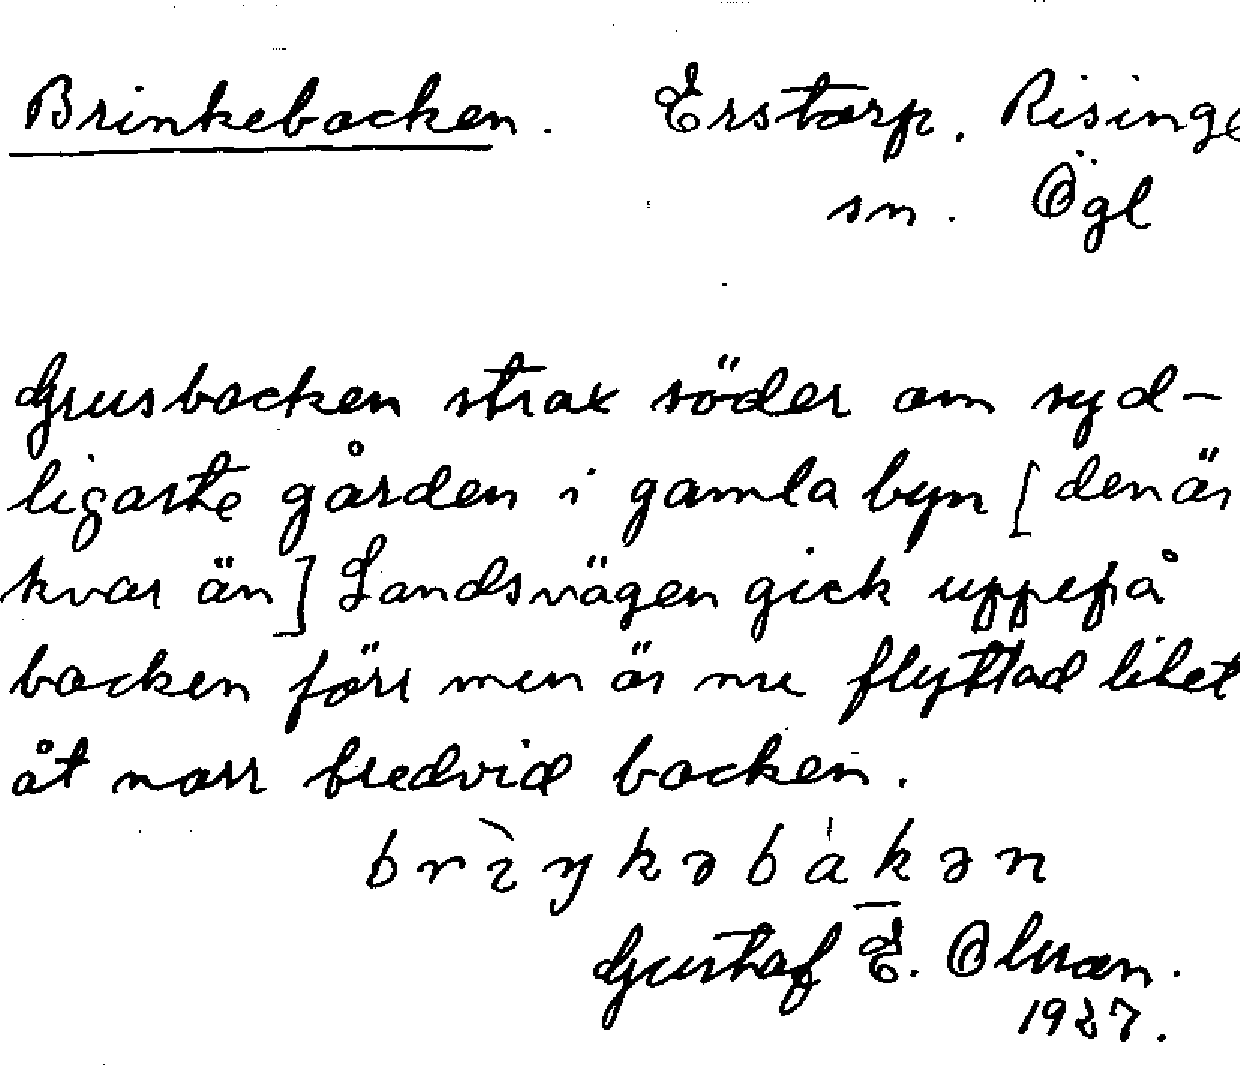 Brinkebacken. Erstorp. Risinge
sn. Ögl
Grusbacken strax söder om syd-
ligaste gården i gamla byn [den är
kvar än] Landsvägen gick uppepå
backen förr men är nu flyttad litet
åt norr bredvid backen.
brìŋkəbákən
Gustaf E. Olsson.
1927.